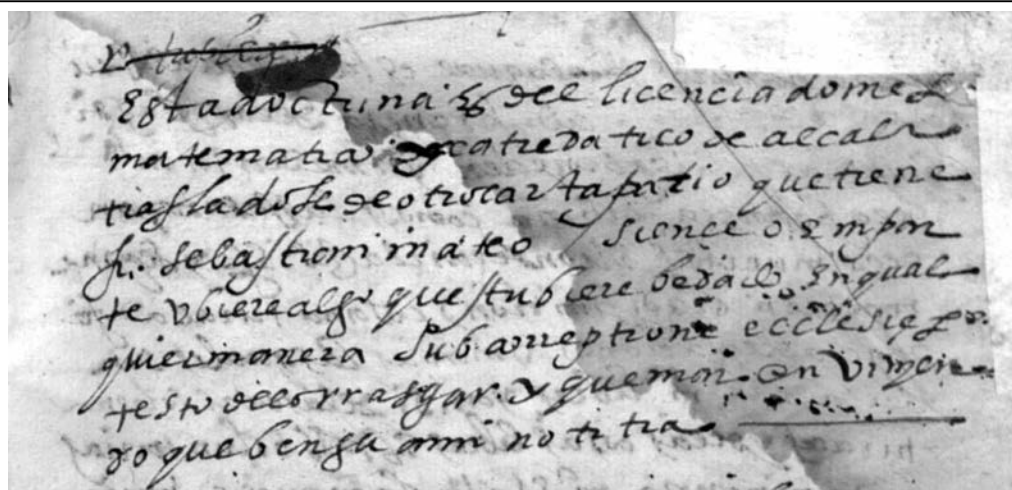 Esta doctrina es del licenciado mes
matematica catredatico de alcala
trasladose de otro cartapatio que tiene
fr. sebastian mateo si en el o en par
te ubiere algo que estubiere bedado en qual
quier manera sub correptione ecclesie pro
testo de lo rrasgar y quemar en
do que benga a mi notitia